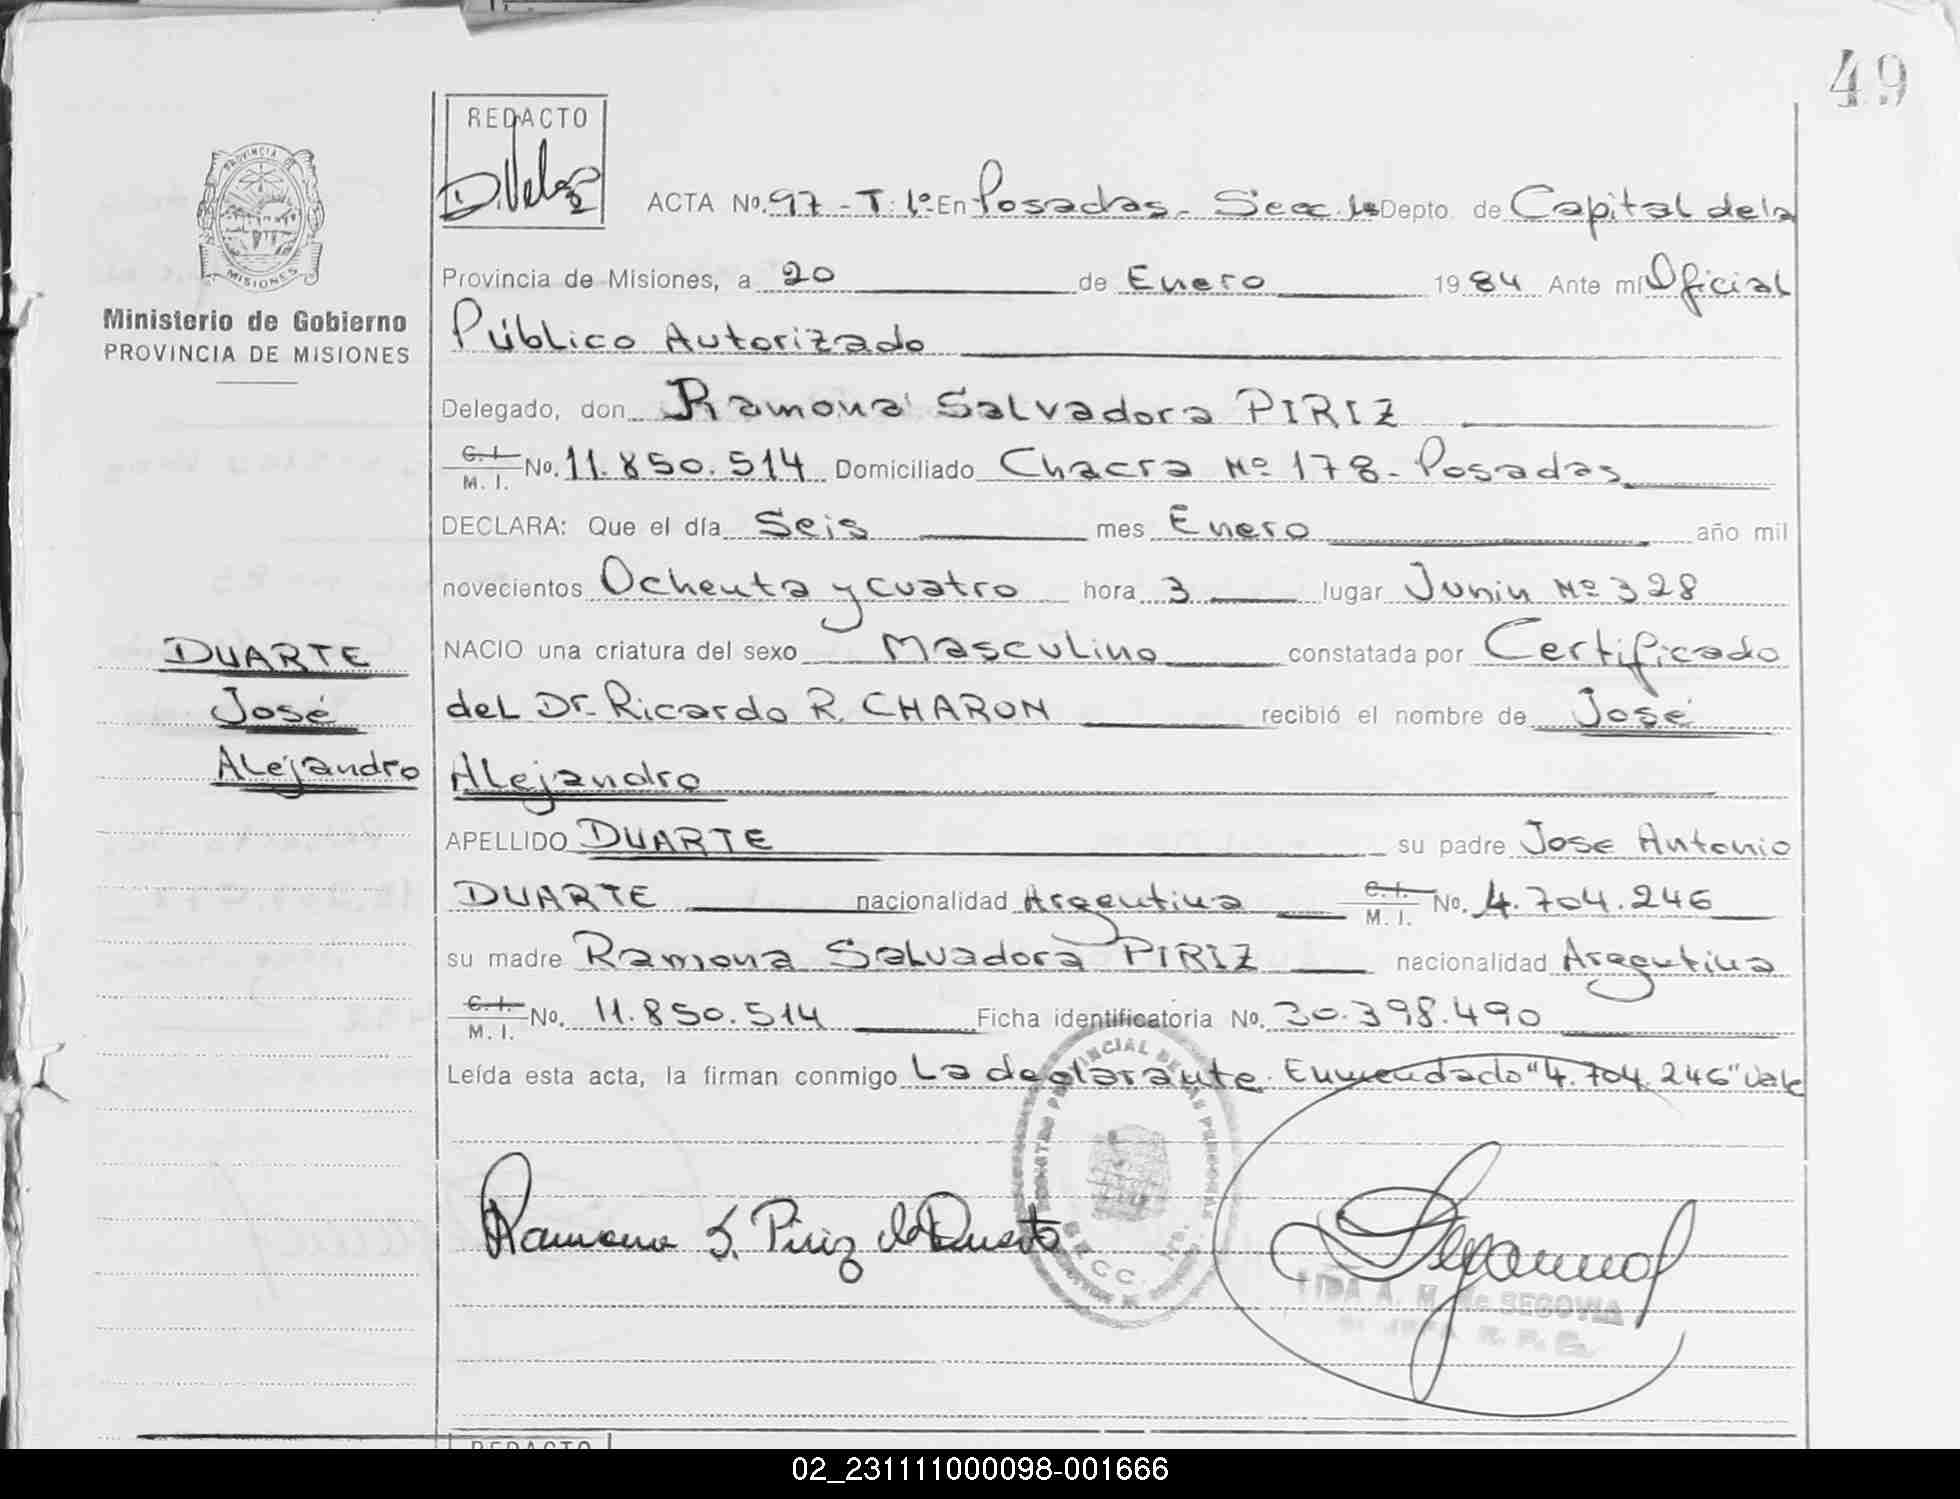 49
REDACTO
D. Velaz
PROVINCIA DE
MISIONES
Ministerio de Gobierno
PROVINCIA DE MISIONES
ACTA No. 97 - T: 1º En Posadas - Secc. 1ª Depto. de Capital de la
Provincia de Misiones, a 20 de Enero 1984 Ante mí Oficial
Público Autorizado
Delegado, don Ramona Salvadora PIRIZ
C. I. M. I. No. 11.850.514 Domiciliado Chacra Nº 178 - Posadas
DECLARA: Que el día Seis mes Enero año mil
novecientos Ochenta y cuatro hora 3 lugar Junin Nº 328
NACIO una criatura del sexo Masculino constatada por Certificado
del Dr. Ricardo R. CHARON recibió el nombre de José
Alejandro
DUARTE
José
Alejandro
APELLIDO DUARTE su padre Jose Antonio
DUARTE nacionalidad Argentina C. I. M. I. No. 4.704.246
su madre Ramona Salvadora PIRIZ nacionalidad Argentina
C. I. M. I. No. 11.850.514 Ficha identificatoria No. 30.398.490
Leída esta acta, la firman conmigo La declarante. Enmendado "4.704.246" Vale
Ramona S. Piriz de Duarte
REGISTRO PROVINCIAL DE LAS PERSONAS
LIDA A. M. de SEGOVIA
REDACTO
02_231111000098-001666